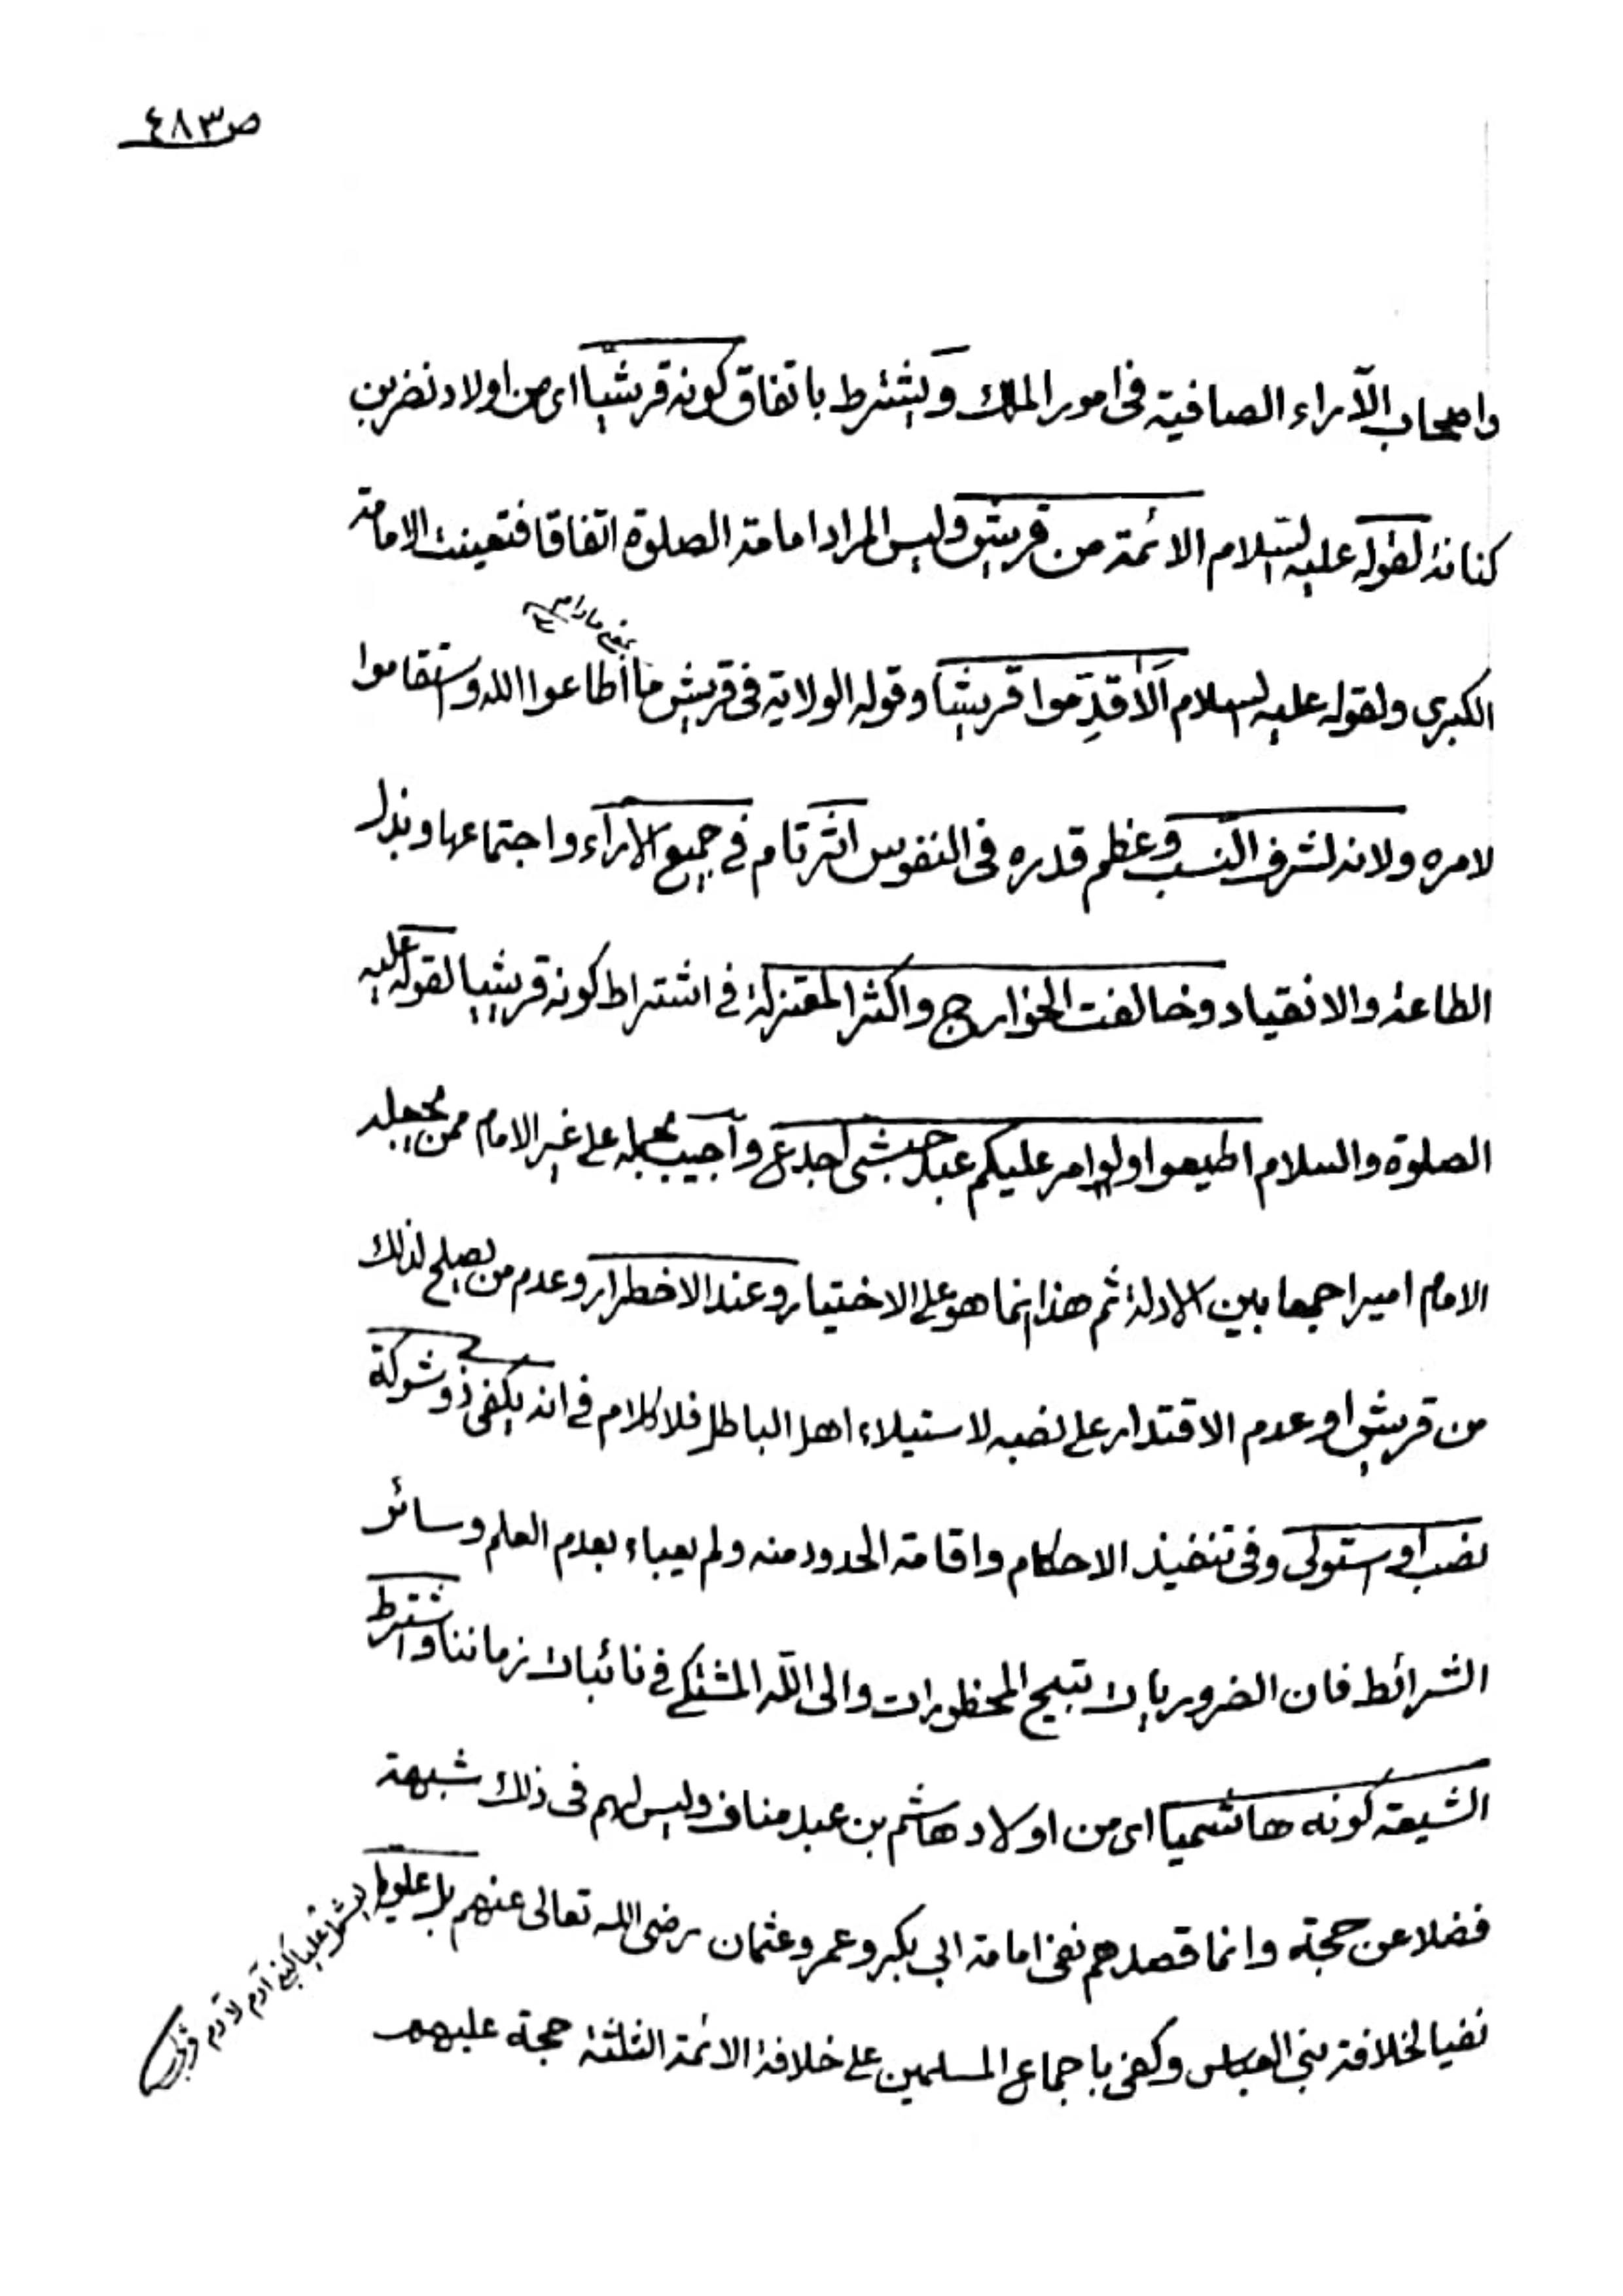 ص٤٨٣
واصحاب الآراء الصافية فى امور الملك ويشترط باتفاق كونه قرشيا اى من اولاد نضر بن
كنانة لقوله عليه السلام الائمة من قريش وليس المراد امامة الصلوة اتفاقا فتعينت الامامة
يعنى مادام
الكبرى ولقوله عليه السلام ألا قدِّموا قريشا وقوله الولاية فى قريش ما أطاعوا الله واستقاموا
لامره ولانه لشرف النسب وعظم قدره فى النفوس اثر تام فى جميع الاراء واجتماعها وبذل
الطاعة والانقياد وخالفت الخوارج واكثر المعتزلة فى اشتراط كونه قريشيا لقوله عليه
الصلوة والسلام اطيعوا ولو امر عليكم عبد حبشى اجدع وأجيب بحمله على غير الامام ممن يجعله
الامام اميرا جمعا بين الادلة ثم هذا انما هو على الاختيار وعند الاضطرار وعدم من يصلح لذلك
من قريش او عدم الاقتدار على نصبه لاستيلاء اهل الباطل فلا كلام فى انه يكفى ذو شوكة
نصب او استولى وفى تنفيذ الاحكام واقامة الحدود منه ولم يعباء بعدم العلم وسائر
الشرائط فان الضروريات تبيح المحظورات والى الله المشتكى فى نائبات زماننا واشترط
الشيعة كونه هاشميا اى من اولاد هاشم بن عبد مناف وليس لهم فى ذلك شبهة
فضلا عن حجة وانما قصدهم نفى امامة ابى بكر وعمر وعثمان رضى الله تعالى عنهم بل علويا
نفيا لخلافة بنى العباس وكفى باجماع المسلمين على خلافة الائمة الثلثة حجة عليهم